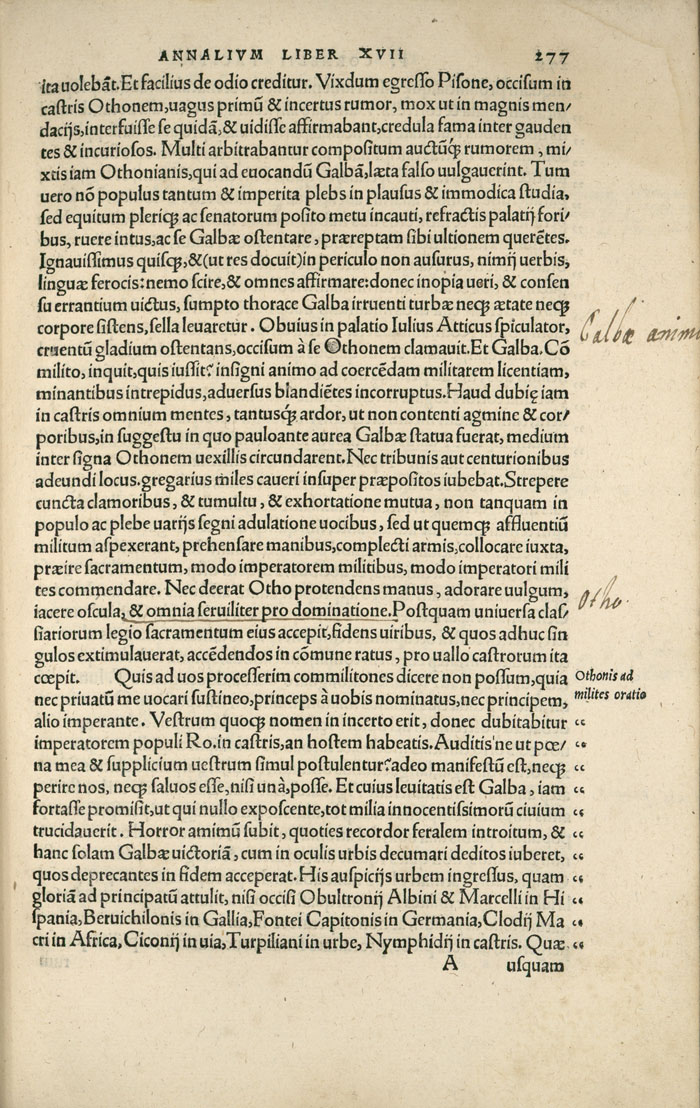 ANNALIVM LIBER XVII 277
ita uolebāt. Et facilius de odio creditur. Vixdum egresso Pisone, occisum in
castris Othonem, uagus primū & incertus rumor, mox ut in magnis men/
dacijs, interfuisse se quidā, & uidisse affirmabant, credula fama inter gauden
tes & incuriosos. Multi arbitrabantur compositum auctūq́; rumorem, mi/
xtis iam Othonianis, qui ad euocandū Galbā, læta falso uulgauerint. Tum
uero nō populus tantum & imperita plebs in plausus & immodica studia,
sed equitum pleriq; ac senatorum posito metu incauti, refractis palatij fori/
bus, ruere intus, ac se Galbæ ostentare, præreptam sibi ultionem querētes.
Ignauissimus quisq;, & (ut res docuit) in periculo non ausurus, nimij uerbis,
linguæ ferocis: nemo scire, & omnes affirmare: donec inopia ueri, & consen
su errantium uictus, sumpto thorace Galba irruenti turbæ neq; ætate neq;
corpore sistens, sella leuaretur. Obuius in palatio Iulius Atticus spiculator,
cruentū gladium ostentans, occisum à se Othonem clamauit. Et Galba. Cō
milito, inquit, quis iussit? insigni animo ad coercēdam militarem licentiam,
minantibus intrepidus, aduersus blandiētes incorruptus. Haud dubię iam
in castris omnium mentes, tantusq́; ardor, ut non contenti agmine & cor/
poribus, in suggestu in quo pauloante aurea Galbæ statua fuerat, medium
inter signa Othonem uexillis circundarent. Nec tribunis aut centurionibus
adeundi locus. gregarius miles caueri insuper præpositos iubebat. Strepere
cuncta clamoribus, & tumultu, & exhortatione mutua, non tanquam in
populo ac plebe uarijs segni adulatione uocibus, sed ut quemq; affluentiū
militum aspexerant, prehensare manibus, complecti armis, collocare iuxta,
præire sacramentum, modo imperatorem militibus, modo imperatori mili
tes commendare. Nec deerat Otho protendens manus, adorare uulgum,
iacere oscula, & omnia seruiliter pro dominatione. Postquam uniuersa clas/
siariorum legio sacramentum eius accepit, fidens uiribus, & quos adhuc sin
gulos extimulauerat, accēdendos in cōmune ratus, pro uallo castrorum ita
cœpit. Quis ad uos processerim commilitones dicere non possum, quia
nec priuatū me uocari sustineo, princeps à uobis nominatus, nec principem,
alio imperante. Vestrum quoq; nomen in incerto erit, donec dubitabitur “
imperatorem populi Ro. in castris, an hostem habeatis. Auditis'ne ut pœ/ “
na mea & supplicium uestrum simul postulentur? adeo manifestū est, neq; “
perire nos, neq; saluos esse, nisi unà, posse. Et cuius leuitatis est Galba, iam “
fortasse promisit, ut qui nullo exposcente, tot milia innocentissimorū ciuium “
trucidauerit. Horror animū subit, quoties recordor feralem introitum, & “
hanc solam Galbæ uictoriā, cum in oculis urbis decumari deditos iuberet, “
quos deprecantes in fidem acceperat. His auspicijs urbem ingressus, quam “
gloriā ad principatū attulit, nisi occisi Obultronij Albini & Marcelli in Hi “
spania, Beruichilonis in Gallia, Fontei Capitonis in Germania, Clodij Ma “
cri in Africa, Ciconij in uia, Turpiliani in urbe, Nymphidij in castris. Quæ “
A usquam
Galbæ anim
Otho.
Othonis ad
milites oratio